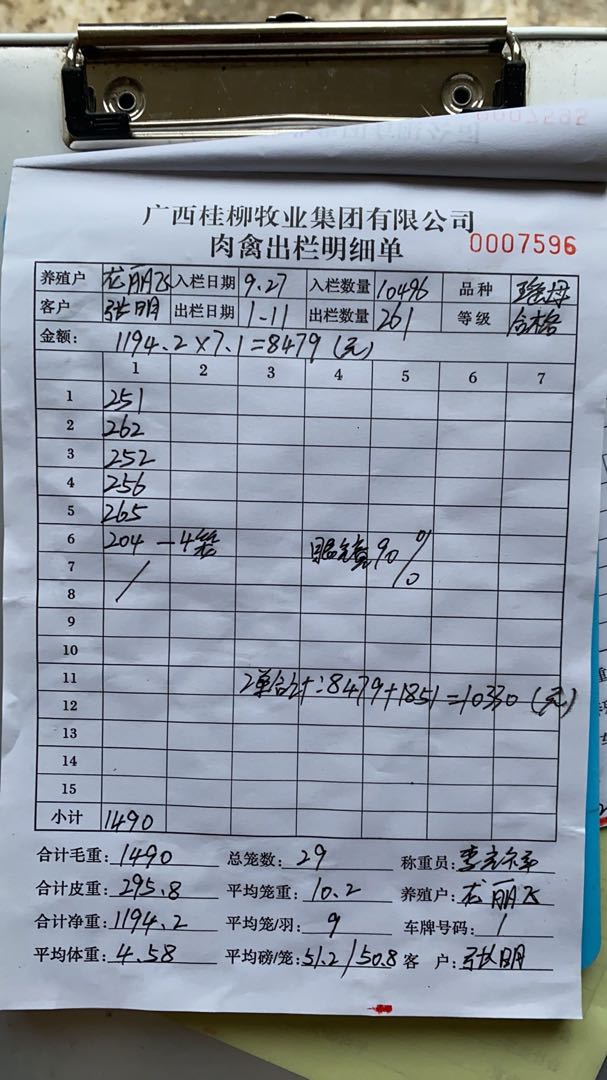 广西桂柳牧业集团有限公司
肉禽出栏明细单 0007596
养殖户 龙丽飞 入栏日期 9.27 入栏数量 10496 品种 瑶母
客户 张明 出栏日期 1-11 出栏数量 261 等级 合格
金额: 1194.2×7.1=8479(元)
1 2 3 4 5 6 7
1 251
2 262
3 252
4 256
5 265
6 204 —4笼 90%
7
8
9
10
11 2单合计:8479+1851=10330(元)
12
13
14
15
小计 1490
合计毛重: 1490 总笼数: 29 称重员:
合计皮重: 295.8 平均笼重: 10.2 养殖户: 龙丽飞
合计净重: 1194.2 平均笼/羽: 9 车牌号码: /
平均体重: 4.58 平均磅/笼: 51.2/50.8 客 户: 张明